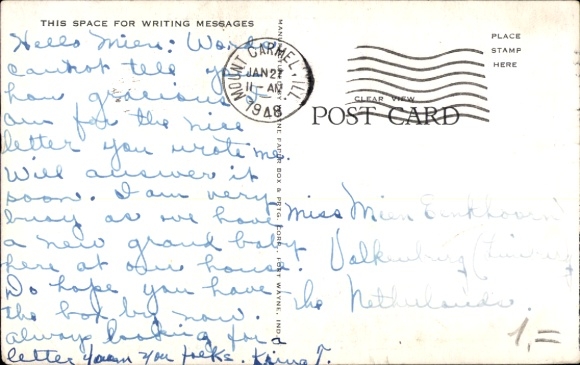 THIS SPACE FOR WRITING MESSAGES
Hello Mien: Words
cannot tell you
how gracious I
am for the nice
letter you wrote me.
Will answer it
soon. I am very
busy as we have
a new grand baby
here at our house.
Do hope you have
the box by now.
always looking for a
letter from you folks.
MOUNT CARMEL, ILL.
JAN 27
11-AM
1948
PAPER BOX & PRTG. CORP., FORT WAYNE, IND.
PLACE
STAMP
HERE
CLEAR VIEW
POST CARD
Miss Mien
Valkenburg (Limburg)
The Netherlands.
1,=